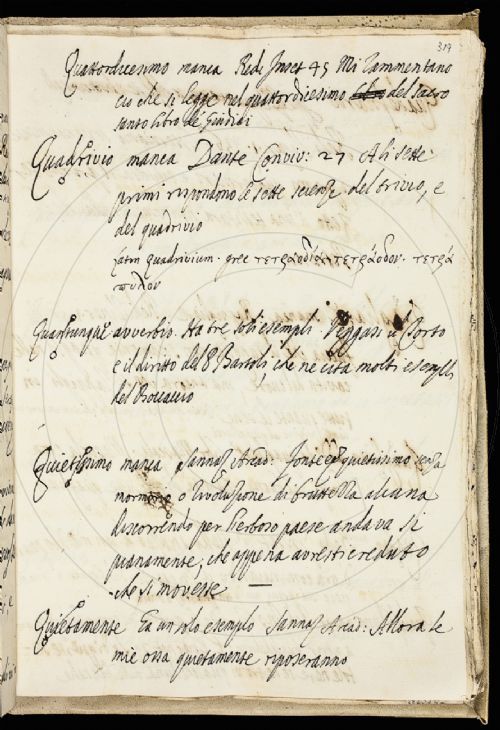 319
Quattordicesimo manca Redi Inset 45 Mi rammentano
ciò che si legge nel quattordicesimo del sacro
santo libro de Giudici
Quadrivio manca Dante Conviv: 27 A li sette
primi rispondono le sette scienze del trivio, e
del quadrivio
latin quadrivium. grec τετραοδία τετράοδον. τετρά
πυλον
Quantunque avverbio. Ha tre soli esempli. Veggasi il Torto
e il diritto del P Bartoli che ne cita molti esempli
del Boccaccio
Quietissimo manca Sannaz Arcad: quietissimo senza
mormorio o rivoluzione di bruttezza alcuna
discorrendo per herboso paese andava si
pianamente, che appena avresti creduto
che si movesse
Quietamente Ha un solo esempio Sannaz Arcad: Allora le
mie ossa quietamente riposeranno